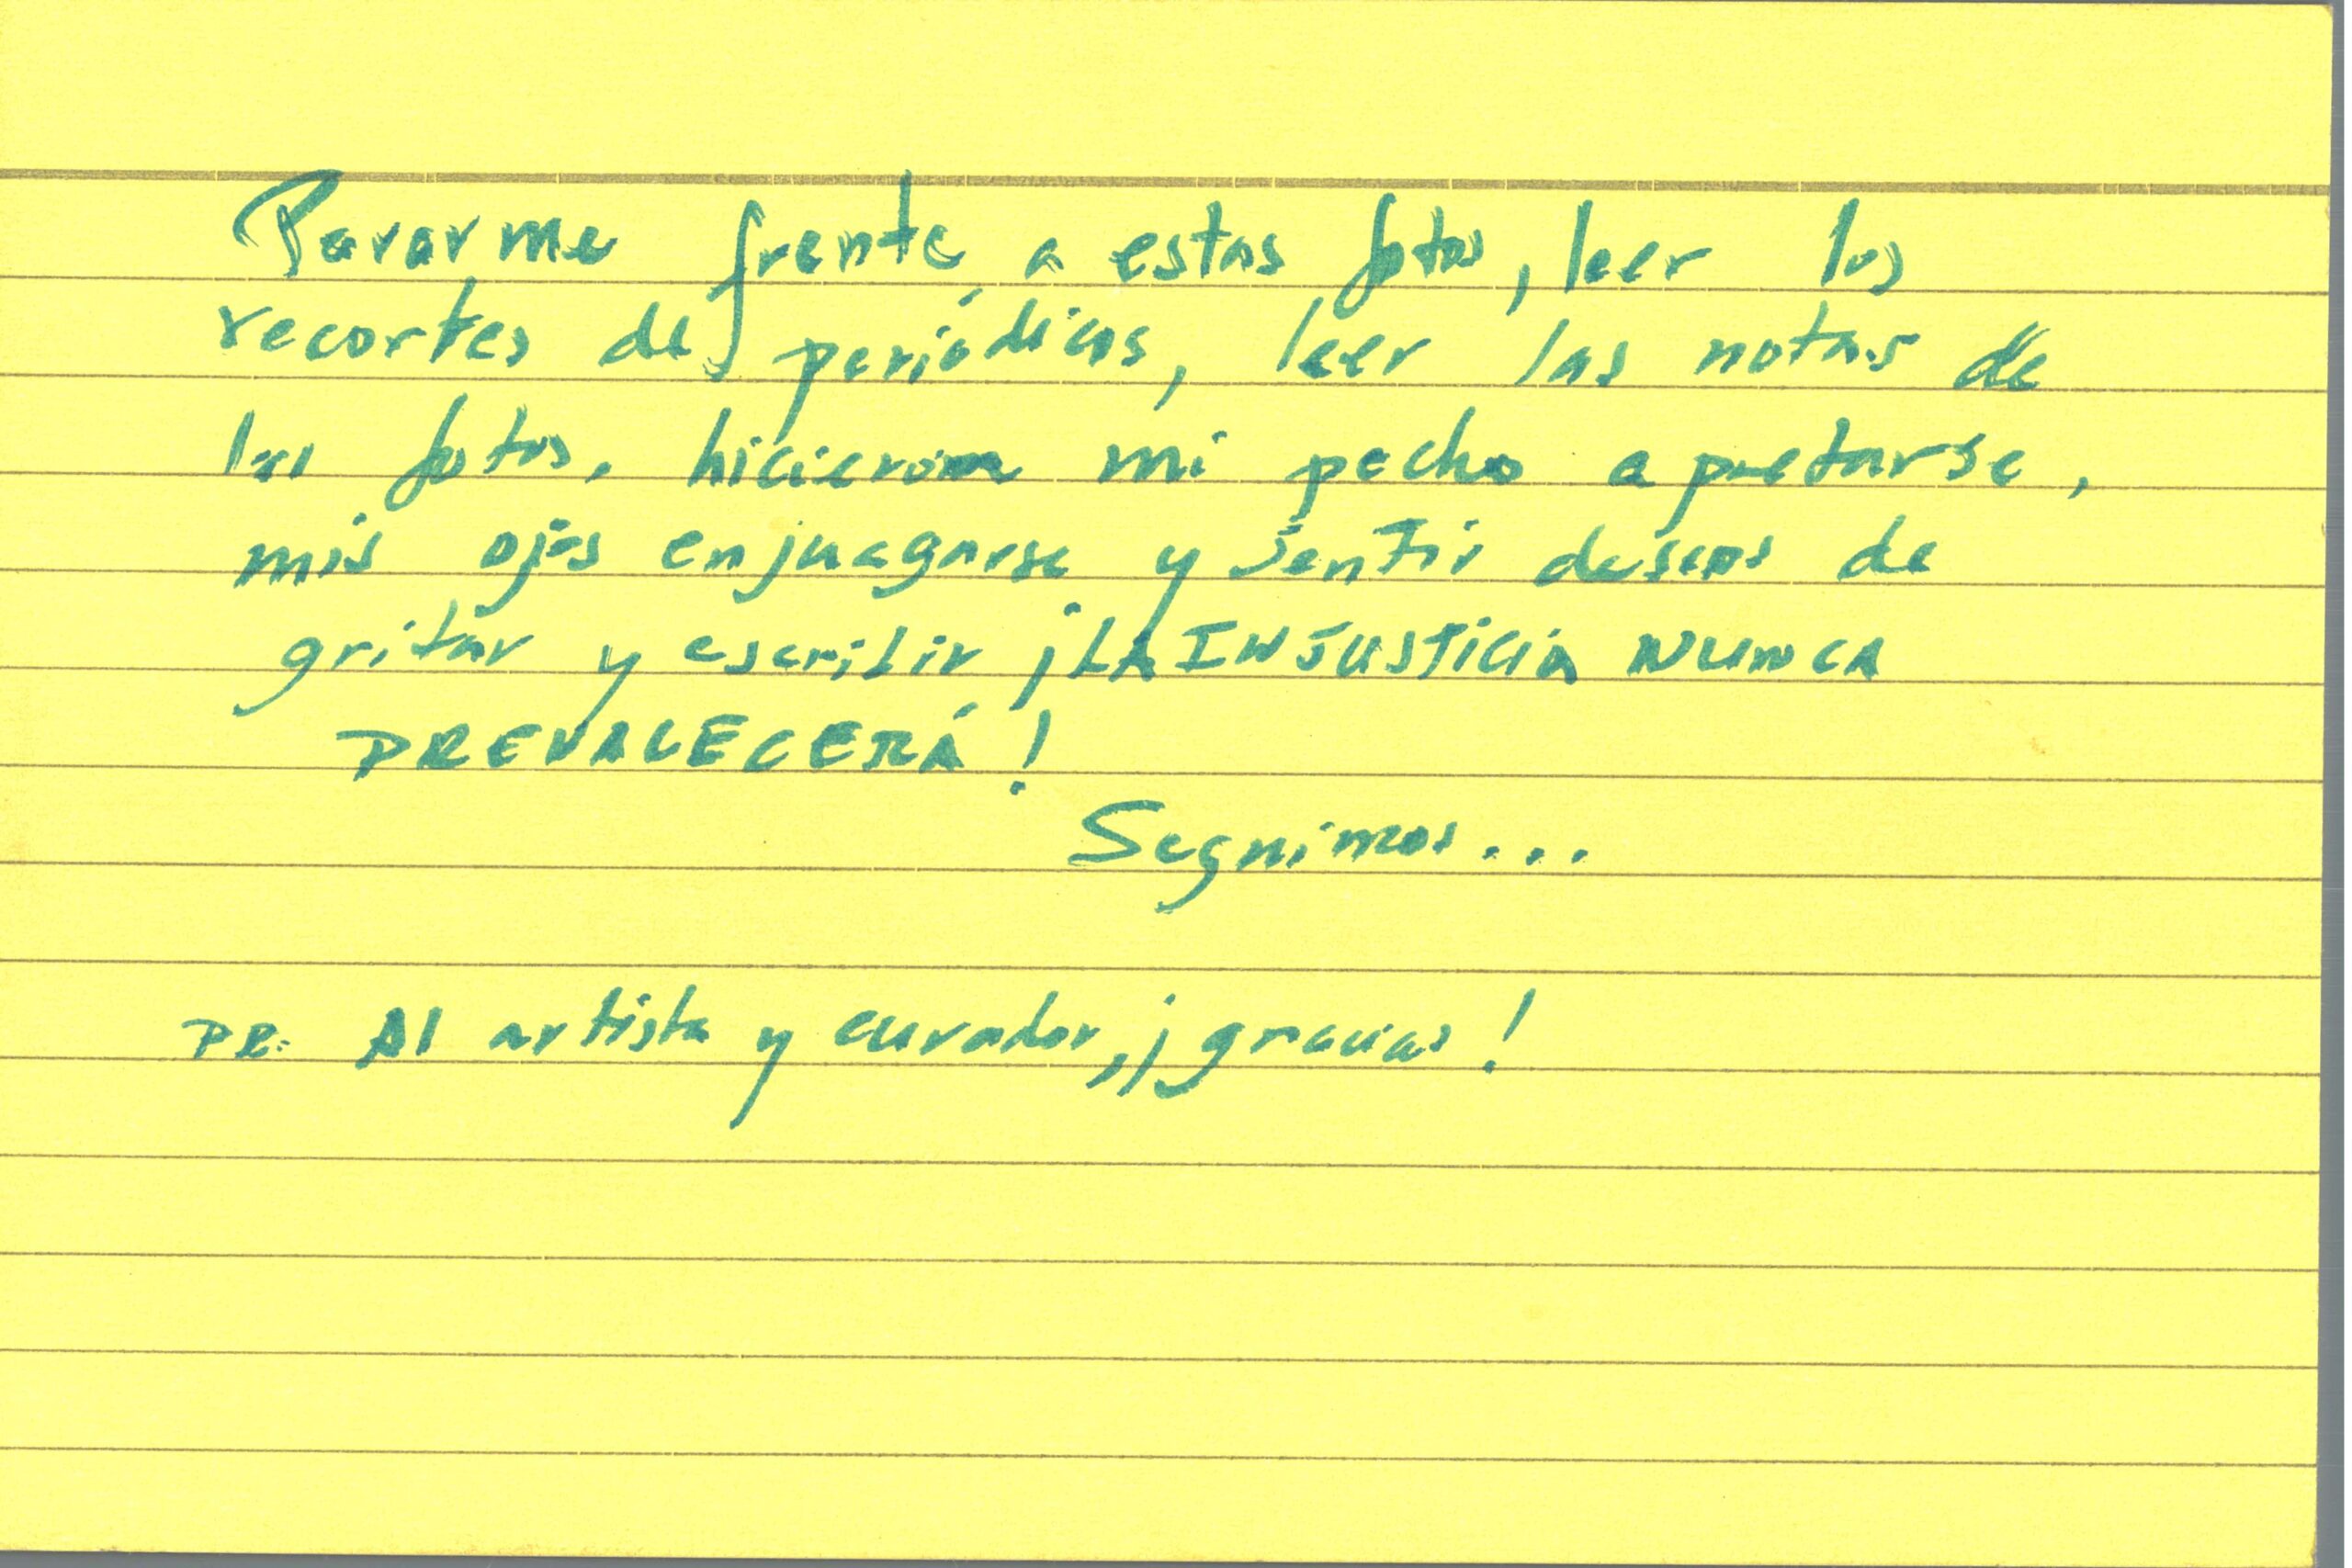 Pararme frente a estas fotos, leer los
recortes de periódicos, leer las notas de
las fotos, hicieron mi pecho apretarse,
mis ojos enjuagarse y sentir deseos de
gritar y escribir ¡LA INJUSTICIA NUNCA
PREVALECERÁ!
Seguimos...
PD: Al artista y curador, ¡gracias!